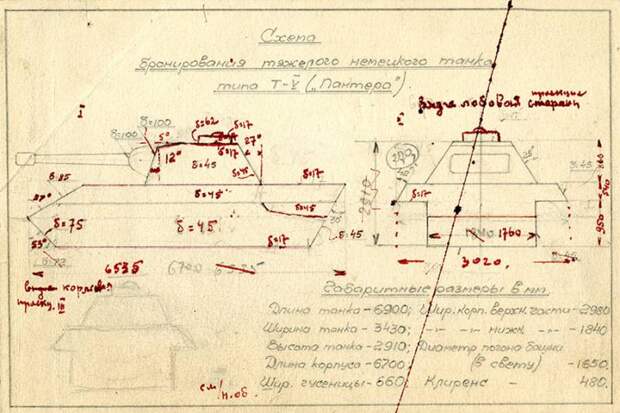 Схема
бронирования тяжелого немецкого танка
типа Т-V („Пантера")
I
вид с лобовой
стороны
II
δ=100
δ=100
5°
δ=62
δ=17
δ=17
27°
12°
δ=45
δ=45
δ=17
δ=85
δ=45
δ=45
δ=75
δ=45
δ=17
δ=45
53°
6535
6700
δ=17
δ=45
2910
1840 1760
3020.
540
950
вид с кормовой
III
Габаритные размеры в мм.
Длина танка-6900; Шир. корп. верхн. части-2980
Ширина танка-3430; —"— —"— нижн —"— -1840
Высота танка-2910; Диаметр погона башни
Длина корпуса-6700, (в свету) -1650.
Шир. гусеницы-660; Клиренс - 480.
см/н.об.